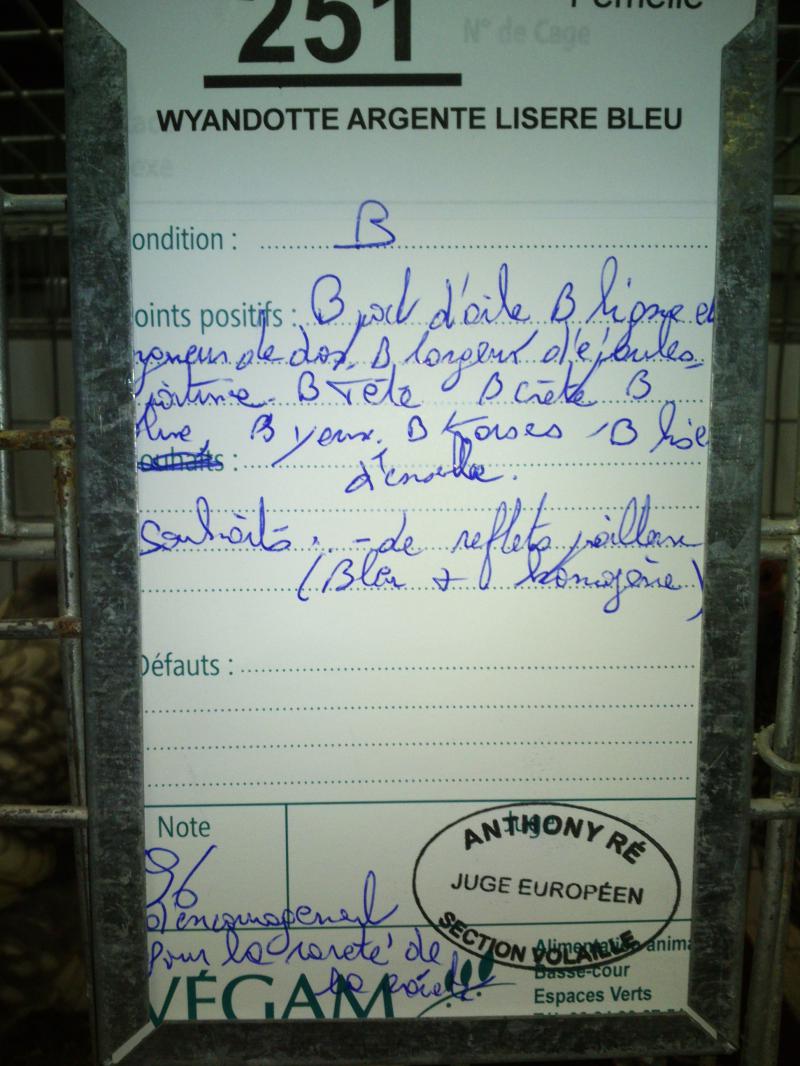 Femelle
251
N° de Cage
WYANDOTTE ARGENTE LISERE BLEU
ondition : B
oints positifs : B port d'aile B ligne et
longueur de dos, B largeur d'épaules,
poitrine. B Tête B crête B
B yeux. B Tarses - B lise
ouhaits :
d'ensemble.
Souhaits : - de reflets
(Bleu + homogène)
Défauts :
Note
Juge
96
d'encouragement
Pour la rareté de
la
ANTHONY RÉ
JUGE EUROPÉEN
SECTION VOLAILLE
VÉGAM
Alimentation anima
Basse-cour
Espaces Verts